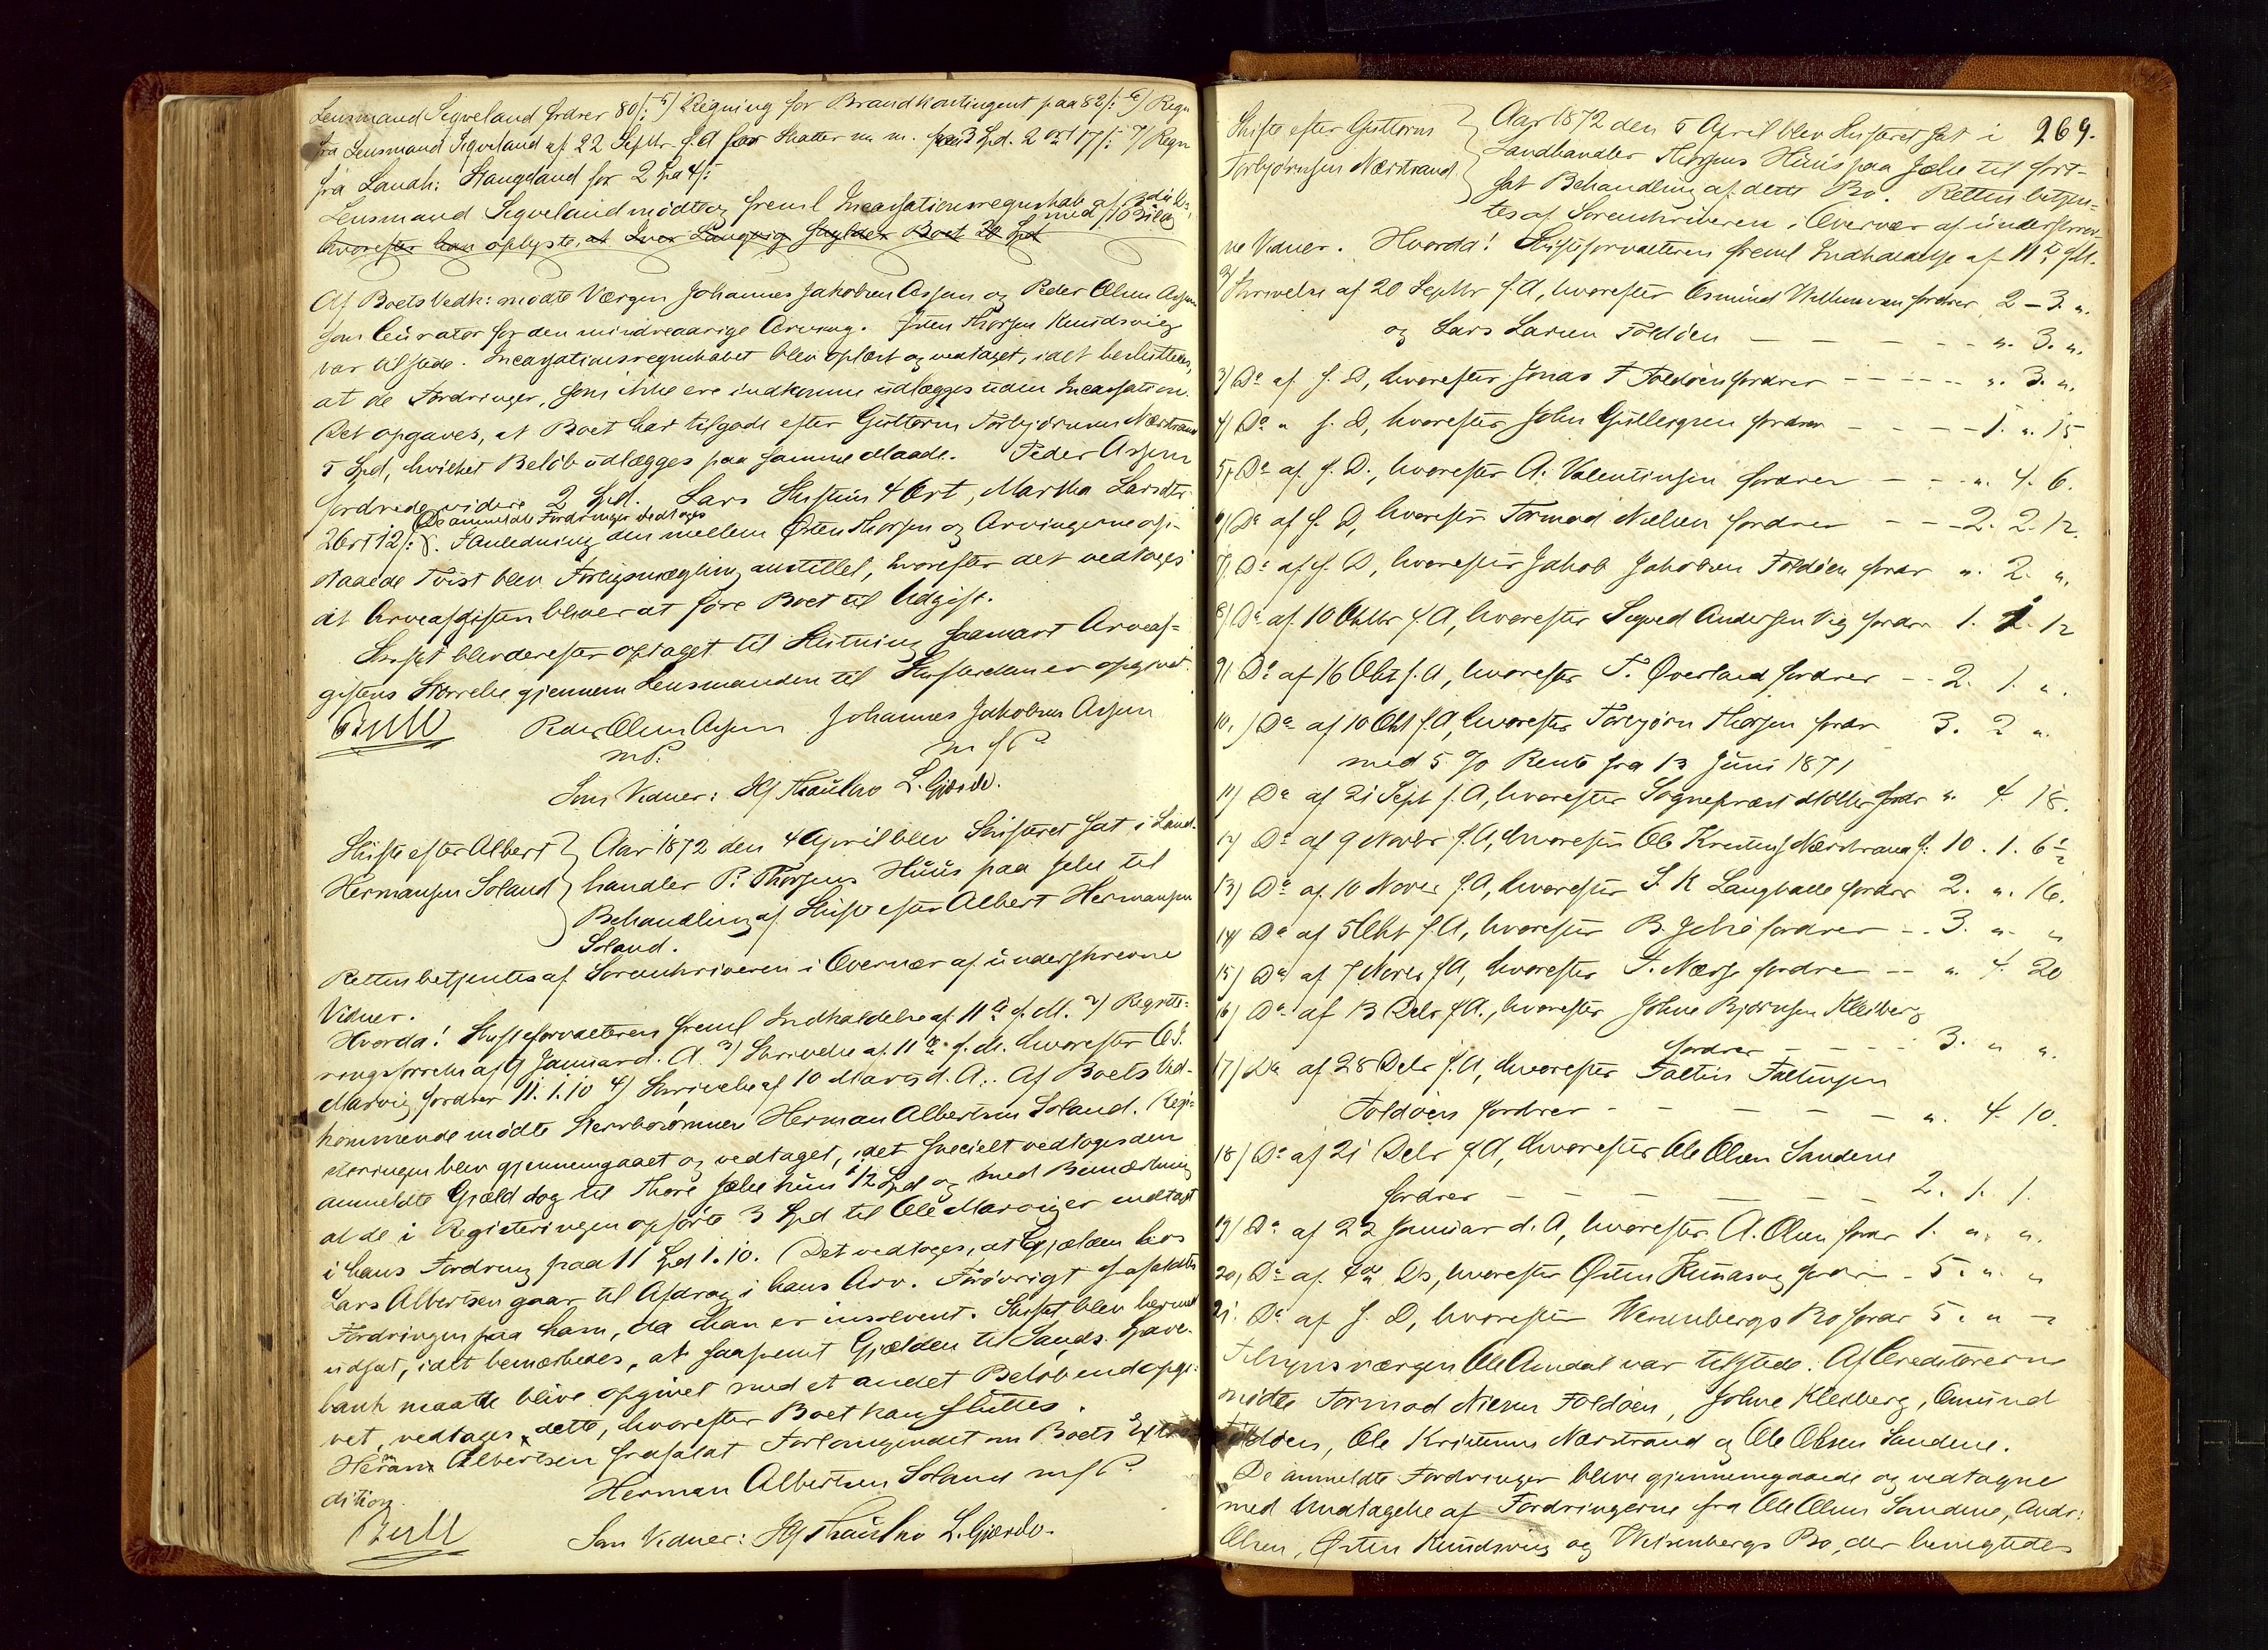 Lensmand Sigveland fordrer 80/: 5) Regning for Brandkontingent paa 82/: 6) Regn
fra Lensmand Sigveland af 22 Septbr. f. A for Skatter m. m. paa 3 Spd. 2 ort 17/: 7) Regn
fra Landh: Haugeland for 2 Spd 4/:
Lensmand Sigveland mødte og freml Incassationsregnskab af
med 10 Bilag
hvorefter han oplyste, at Iver skylder Boet 20 Spd
Af Boets Vedk: mødte Værgen Johannes Jakobsen Asson og Peder Olsen Asson
som Curator for den mindreaarige Arving. Østen Thorsen Knudsvig
var tilstede. Incassationsregnskabet blev oplæst og vedtaget, idet besluttedes,
at de Fordringer, som ikke ere indkomne udlægges uden Incassation.
Det opgaves, at Boet har tilgode efter Guttorm Torbjørnsen Nærstrand
5 Spd, hvilket Beløb udlægges paa samme Maade. Peder Assen
fordrede videre 2 Spd. Lars 4 Ort, Martha Larsdtr
De anmeldte Fordringer vedtoges
2 Ort 12/: . I Anledning den mellem Østen Thorsen og Arvingerne op-
staaede Tvist blev Forligsmægling anstillet, hvorefter det vedtoges
at Arveafgiften bliver at føre Boet til Udgift.
Skiftet blev derefter optaget til Slutning saasnart Arveaf-
giftens Størrelse gjennem Lensmanden til Skifteretten er opgivet.
Bull Peder Olsen Assen Johannes Jakobsen Assen
m P. m f P
Som Vidner: L. Gjerde.
Skifte efter Albert
Hermansen Soland
Aar 1872 den 4 April blev Skifteret sat i Land-
handler P. Thorsens Huus paa Jelse til
Behandling af Skifte efter Albert Hermansen
Soland.
Retten betjentes af Sorenskriveren i Overvær af underskrevne
Vidner.
Hvorda! Skifteforvalteren freml Indkaldelse af 11te f. M. 2) Registe-
ringsforretn af 9 Januar d. A. 3) Skrivelse af 11te f. M. hvorefter O. J.
Marvig fordrer 11. 1. 10 4) Skrivelse af 10 Marts d. A. Af Boets Ved-
kommende mødte Sterbosønnen Herman Albertsen Soland. Regi-
streringen blev gjennemgaaet og vedtaget, idet specielt vedtoges den
anmeldte Gjæld dog til Thore Jelse kun 12 Spd og med Bemærkning
at de i Registeringen opførte 3 Spd til Ole Marvig er indtaget
i hans Fordring paa 11 Spd 1. 10. Det vedtoges, at Gjælden hos
Lars Albertsen gaar til Afdrag i hans Arv. Forøvrigt frafaldtes
Fordringen paa ham, da han er insolvent. Skiftet blev hermed
udsat, idet bemærkedes, at saafremt Gjælden til Sands Spare-
bank maatte blive opgivet med et andet Beløb end opgi-
vet, vedtages dette, hvorefter Boet kan sluttes.
Herman Albertsen frafalat Forlangendet om Boets Expe-
dition. Herman Albertsen Soland m f P.
Bull
Som Vidner: L. Gjerde.
269.
Skifte efter Guttorm
Torbjørnsen Nærstrand
Aar 1872 den 5 April blev Skifteret sat i
Landhandler Thorsens Huus paa Jelse til fort-
sat Behandling af dette Bo. Retten betjen-
tes af Sorenskriveren i Overvær af underskrev-
ne Vidner. Hvorda! Skifteforvalteren freml Indkaldelse af 11te f. M.
2) Skrivelse af 20 Septbr f. A, hvorefter Osmund Villumsen fordrer 2 – 3. „
og Lars Larsen Foldøen – – – – – „. 3. „.
3) Do af s. D, hvorefter Jonas T Foldøen fordrer – – – – – „. 3. „.
4) Do „ s. D, hvorefter John Gullesgren fordrer – – – – 1. „. 15
5) Do af s. D., hvorefter A. Valentinsen fordrer – – – „. 4. 6.
6) Do af s. D, hvorefter Tormod Nielsen fordrer – – – 2. 2. 12.
7) Do af s. D, hvorefter Jakob Jakobsen Foldøen fordr „. 2. „.
8) Do af 10 Oktbr f. A, hvorefter Sigved Andersen Vig fordrer 1. 2. 12
9) Do af 16 Okt f. A, hvorefter T. Øverland fordrer – – 2. 1. „.
10.) Do af 10 Okt f. A, hvorefter Torbjørn Thorsen fordr 3. 2 „.
med 5 % Rente fra 13 Juni 1871
11) Do af 21 Sept f. A, hvorefter Sognepræst Møller fordr „. 4. 18.
12) Do af 9 Novbr f. A, hvorefter Ole Kristens Nærstrand f: 10. 1. 6 1/2
13) Do af 10 Novbr f. A, hvorefter S. K Langballe fordrer 2. „. 16.
14) Do af 5 Okt f. A, hvorefter B. Jelsø fordrer – – 3. „. „
15) Do af 7 Novbr f A, hvorefter S. Næss fordrer – – „. 4. 20
16) Do af 13 Decbr f A., hvorefter Johne Bjørnsen Kleiberg
fordrer – – – – 3. „ „.
17) Do af 28 Decbr f. A, hvorefter Faltin Faltinsen
Foldøen fordrer – – – – – – „. 4. 10.
18) Do af 21 Decbr f A, hvorefter Ole Olsen Sandene
fordrer – – – – – – – 2. 1. 1.
19) Do af 22 Januar d. A, hvorefter A. Olsen fordrer 1. „. „.
20) Do af 4de Ds, hvorefter Østen Knudsvig fordrer – 5. „. „
21. Do af s. D, hvorefter Weisenbergs Bo fordrer 5. „ –
Tilsynsværgen Ole Amdal var tilstede. Af Creditorerne
mødte Tormod Nielsen Foldøen, Johne Kleiberg, Osmund
Foldøen, Ole Kristensen Nærstrand og Ole Olsen Sandene.
De anmeldte Fordringer bleve gjennemgaaede og vedtagne
med Undtagelse af Fordringerne fra Ole Olsen Sandene, Andr:
Olsen, Østen Knudsvig og Weisenbergs Bo, der benegtedes